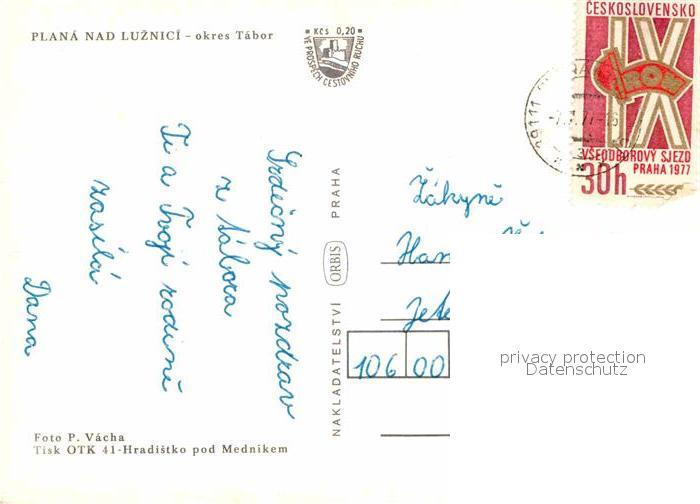 PLANÁ NAD LUŽNICÍ – okres Tábor
Kčs 0,20
VE PROSPĚCH CESTOVNÍHO RUCHU
ČESKOSLOVENSKO
IX
ROH
VŠEODBOROVÝ SJEZD
PRAHA 1977
30h
Srdečný pozdrav
z tábora
Ti a Tvojí rodině
zasílá
Dana
NAKLADATELSTVÍ ORBIS PRAHA
Žákyně
Han
Jete
106 00
privacy protection
Datenschutz
Foto P. Vácha
Tisk OTK 41-Hradištko pod Medníkem